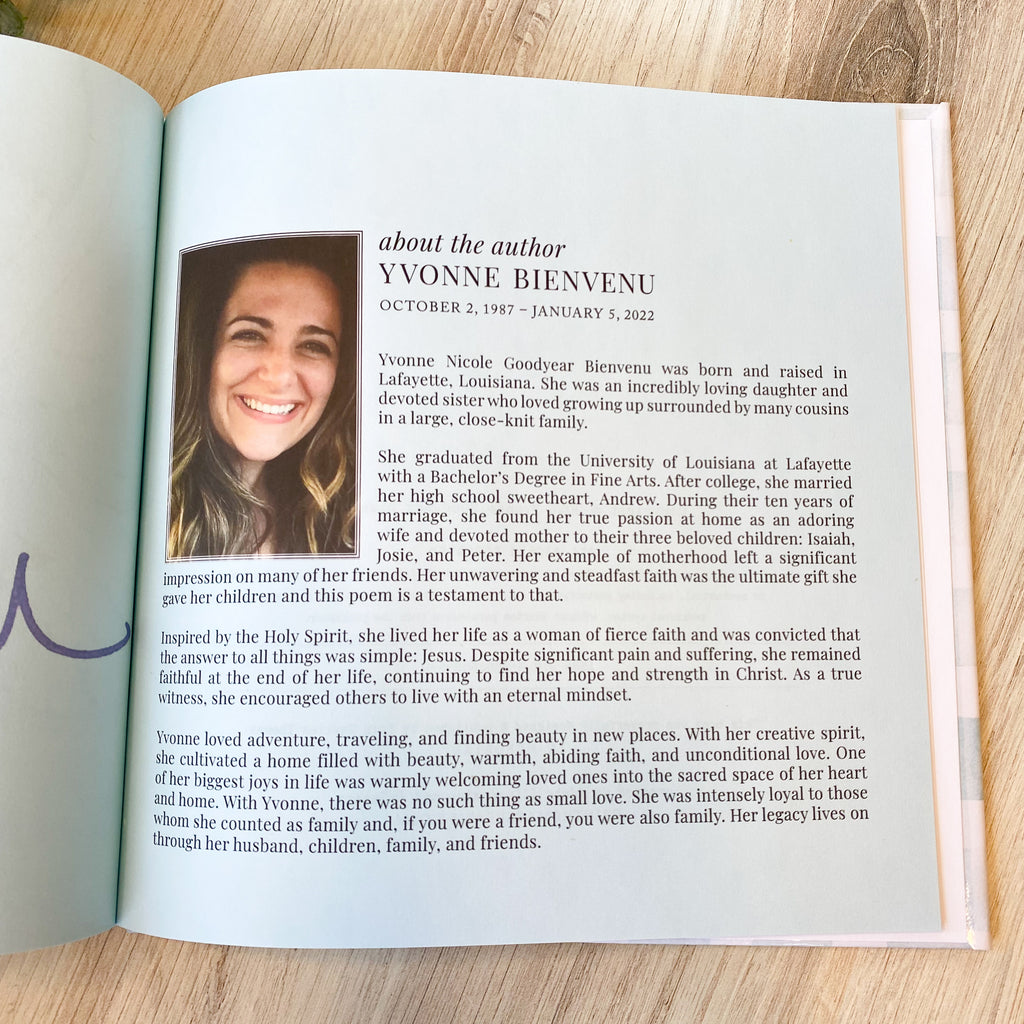 about the author
YVONNE BIENVENU
OCTOBER 2, 1987 – JANUARY 5, 2022
Yvonne Nicole Goodyear Bienvenu was born and raised in
Lafayette, Louisiana. She was an incredibly loving daughter and
devoted sister who loved growing up surrounded by many cousins
in a large, close-knit family.
She graduated from the University of Louisiana at Lafayette
with a Bachelor's Degree in Fine Arts. After college, she married
her high school sweetheart, Andrew. During their ten years of
marriage, she found her true passion at home as an adoring
wife and devoted mother to their three beloved children: Isaiah,
Josie, and Peter. Her example of motherhood left a significant
impression on many of her friends. Her unwavering and steadfast faith was the ultimate gift she
gave her children and this poem is a testament to that.
Inspired by the Holy Spirit, she lived her life as a woman of fierce faith and was convicted that
the answer to all things was simple: Jesus. Despite significant pain and suffering, she remained
faithful at the end of her life, continuing to find her hope and strength in Christ. As a true
witness, she encouraged others to live with an eternal mindset.
Yvonne loved adventure, traveling, and finding beauty in new places. With her creative spirit,
she cultivated a home filled with beauty, warmth, abiding faith, and unconditional love. One
of her biggest joys in life was warmly welcoming loved ones into the sacred space of her heart
and home. With Yvonne, there was no such thing as small love. She was intensely loyal to those
whom she counted as family and, if you were a friend, you were also family. Her legacy lives on
through her husband, children, family, and friends.